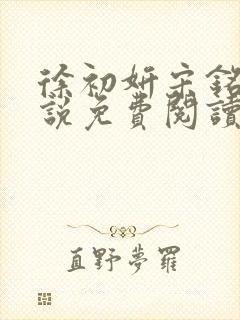 徐初妍宋銘
說免費閱讀
直野夢羅